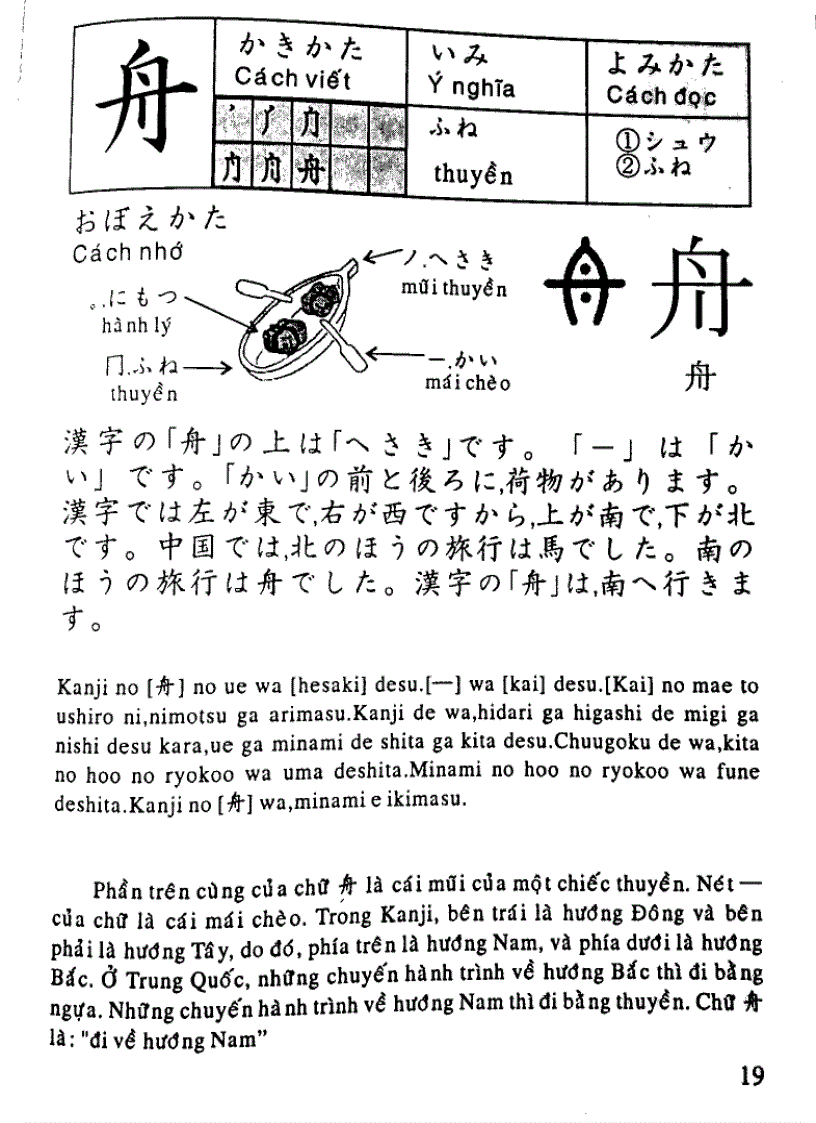 舟
かきかた
Cách viết
いみ
Ý nghĩa
よみかた
Cách đọc
ふね
thuyền
①シュウ
②ふね
舟
おぼえかた
Cách nhớ
ノ.へさき
mũi thuyền
。.にもつ
hành lý
冂.ふね
thuyền
一.かい
mái chèo
舟
舟
漢字の「舟」の上は「へさき」です。「一」は「か
い」です。「かい」の前と後ろに,荷物があります。
漢字では左が東で,右が西ですから,上が南で,下が北
です。中国では,北のほうの旅行は馬でした。南の
ほうの旅行は舟でした。漢字の「舟」は,南へ行きま
す。
Kanji no [舟] no ue wa [hesaki] desu.[一] wa [kai] desu.[Kai] no mae to
ushiro ni,nimotsu ga arimasu.Kanji de wa,hidari ga higashi de migi ga
nishi desu kara,ue ga minami de shita ga kita desu.Chuugoku de wa,kita
no hoo no ryokoo wa uma deshita.Minami no hoo no ryokoo wa fune
deshita.Kanji no [舟] wa,minami e ikimasu.
Phần trên cùng của chữ 舟 là cái mũi của một chiếc thuyền. Nét 一
của chữ là cái mái chèo. Trong Kanji, bên trái là hướng Đông và bên
phải là hướng Tây, do đó, phía trên là hướng Nam, và phía dưới là hướng
Bắc. Ở Trung Quốc, những chuyến hành trình về hướng Bắc thì đi bằng
ngựa. Những chuyến hành trình về hướng Nam thì đi bằng thuyền. Chữ 舟
là: "đi về hướng Nam”
19